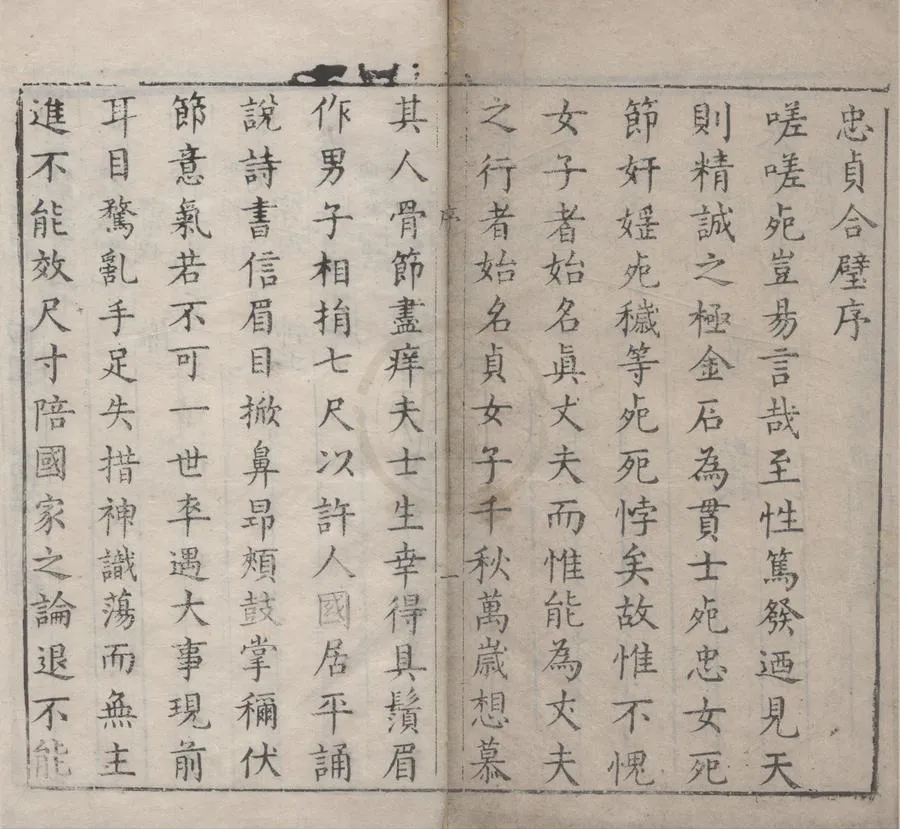 忠貞合璧序
嗟嗟夗豈易言哉至性篤發迺見天
則精誠之極金石為貫士夗忠女死
節奸婬夗穢等夗死悖矣故惟不愧
女子者始名眞丈夫而惟能為丈夫
之行者始名貞女子千秋萬歲想慕
序
一
其人骨節盡痒夫士生幸得具鬚眉
作男子相捐七尺以許人國居平誦
說詩書信眉目掀鼻昂頰鼓掌稱伏
節意氣若不可一世率遇大事現前
耳目驁亂手足失措神識蕩而無主
進不能效尺寸陪國家之論退不能